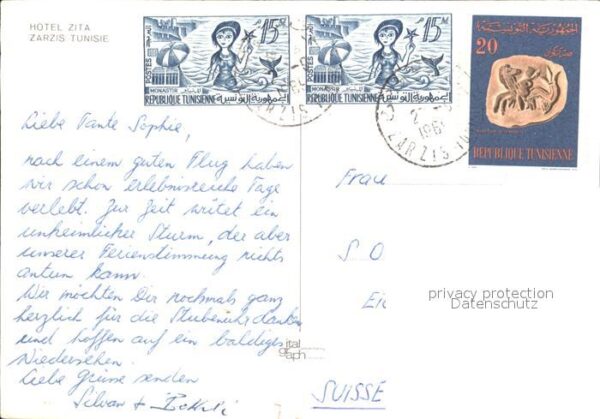 HOTEL ZITA
ZARZIS TUNISIE
15 M
POSTES
MONASTIR
REPUBLIQUE TUNISIENNE
الجمهورية التونسية
15 M
POSTES
MONASTIR
REPUBLIQUE TUNISIENNE
الجمهورية التونسية
الجمهورية التونسية
20
REPUBLIQUE TUNISIENNE
ZARZIS
ZARZIS
Liebe Tante Sophie,
nach einem guten Flug haben
wir schon erlebnisreiche Tage
verlebt. Zur Zeit wütet ein
unheimlicher Sturm, der aber
unserer Ferienstimmung nichts
antun kann.
Wir möchten Dir nochmals ganz
herzlich für die Stubenuhr danken
und hoffen auf ein baldiges
Wiedersehen.
Liebe grüsse senden
Silvan +
Frau
S O
Ei
SUISSE
ital
graph
privacy protection
Datenschutz